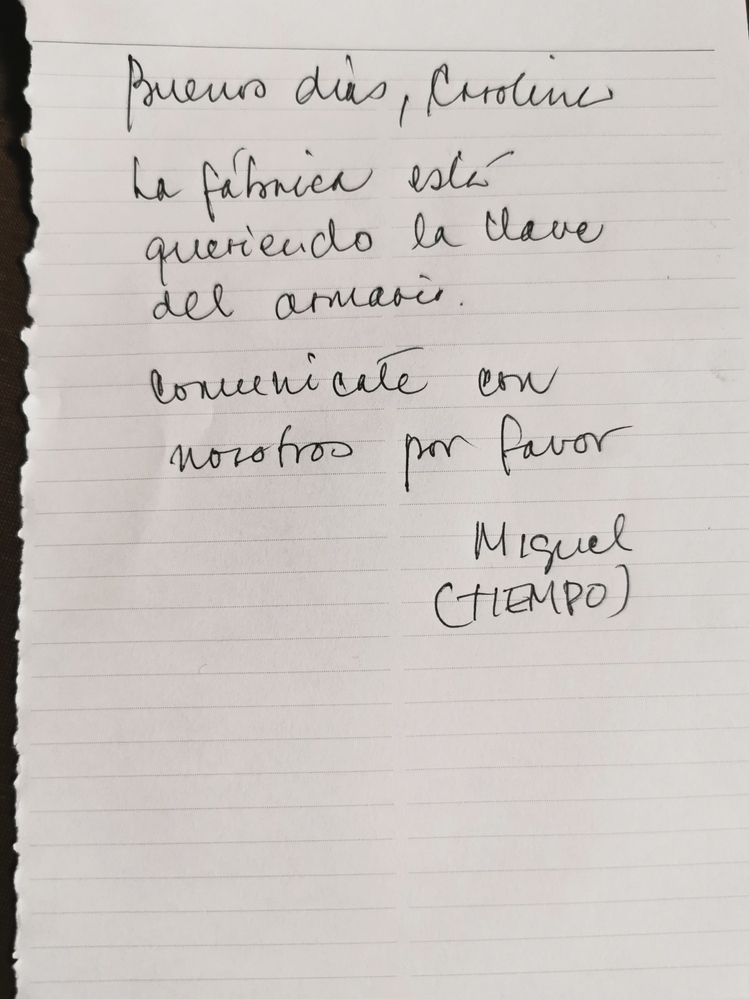 Buenos días, Carolina
La fábrica está
queriendo la llave
del armario.
Comunicate con
nosotros por favor
Miguel
(TIEMPO)